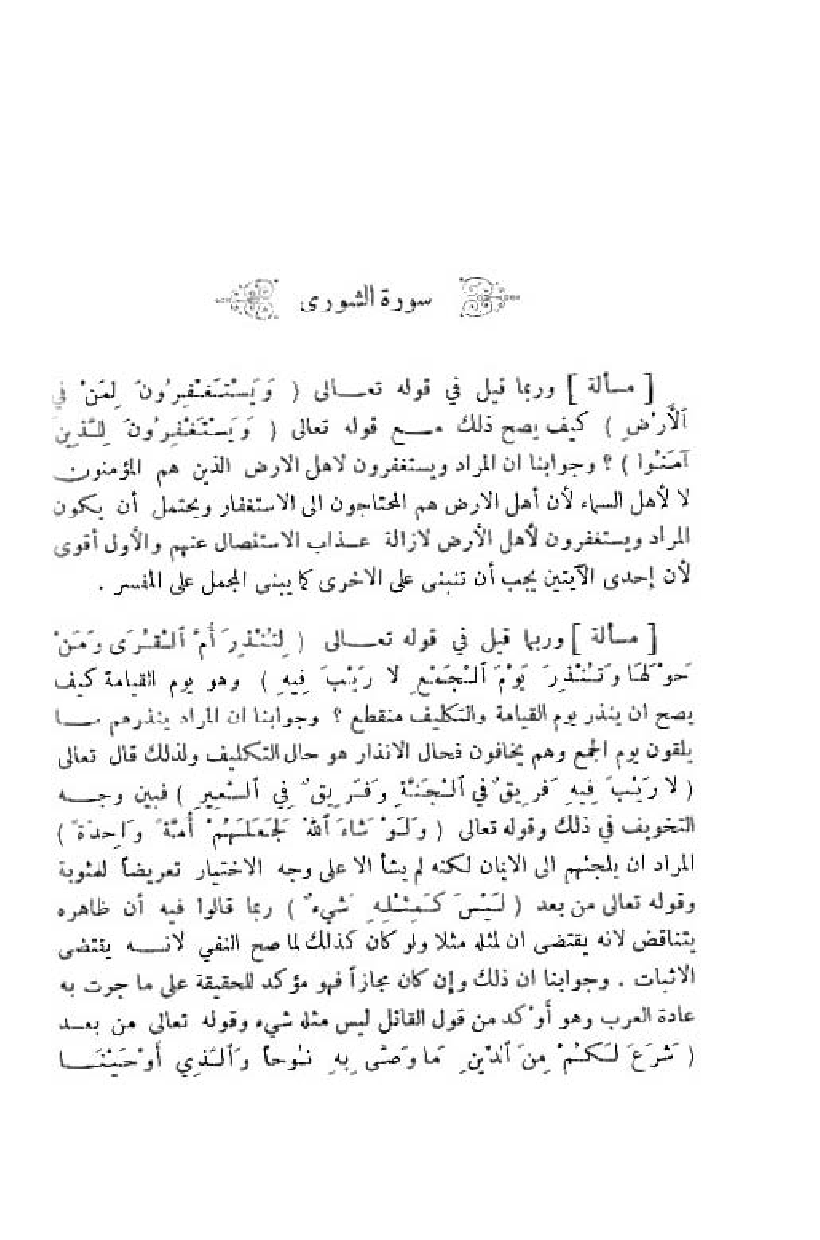 سورة الشورى
[ مسألة ] وربما قيل في قوله تعـالى ( وَيَسْتَغْفِرُونَ لِمَنْ فِي
ٱلْأَرْضِ ) كيف يصح ذلك مـع قوله تعالى ( وَيَسْتَغْفِرُونَ لِلَّذِينَ
آمَنُوا ) ؟ وجوابنا ان المراد ويستغفرون لاهل الارض الذين هم المؤمنون
لا لأهل السماء لأن أهل الارض هم المحتاجون الى الاستغفار ويحتمل أن يكون
المراد ويستغفرون لأهل الأرض لازالة عـذاب الاستئصال عنهم والأول أقوى
لأن إحدى الآيتين يجب أن تنبنى على الاخرى كما يبنى المجمل على المفسر .
[ مسألة ] وربما قيل في قوله تعـالى ( لِتُنْذِرَ أُمَّ ٱلْقُرَى وَمَنْ
حَوْلَهَا وَتُنْذِرَ يَوْمَ ٱلْجَمْعِ لا رَيْبَ فِيهِ ) وهو يوم القيامة كيف
يصح ان ينذر يوم القيامة والتكليف منقطع ؟ وجوابنا ان المراد ينذرهم مـا
يلقون يوم الجمع وهم يخافون فحال الانذار هو حال التكليف ولذلك قال تعالى
( لا رَيْبَ فِيهِ فَرِيقٌ فِي ٱلْجَنَّةِ وَفَرِيقٌ فِي ٱلسَّعِيرِ ) فبين وجـه
التخويف في ذلك وقوله تعالى ( وَلَوْ شَاءَ ٱللهُ لَجَعَلَهُمْ أُمَّةً وَاحِدَةً )
المراد ان يلجئهم الى الايمان لكنه لم يشأ الا على وجه الاختيار تعريضاً للمثوبة
وقوله تعالى من بعد ( لَيْسَ كَمِثْلِهِ شَيْءٌ ) ربما قالوا فيه أن ظاهره
يتناقض لانه يقتضى ان لمثله مثلا ولو كان كذلك لما صح النفي لانـه يقتضى
الاثبات . وجوابنا ان ذلك وإن كان مجازاً فهو مؤكد للحقيقة على ما جرت به
عادة العرب وهو أوْكد من قول القائل ليس مثله شيء وقوله تعالى من بعـد
( شَرَعَ لَكُمْ مِنَ ٱلدِّينِ مَا وَصَّى بِهِ نُوحاً وَٱلَّذِي أَوْحَيْنَـا